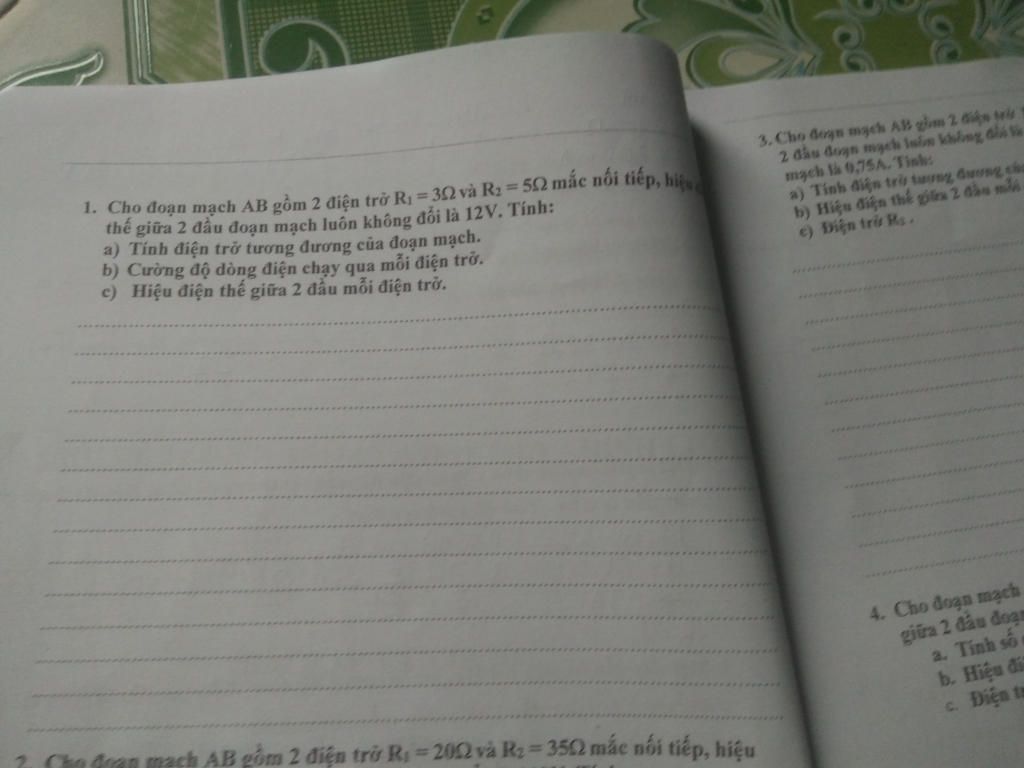 1. Cho đoạn mạch AB gồm 2 điện trở R₁ = 3Ω và R₂ = 5Ω mắc nối tiếp, hiệu
thế giữa 2 đầu đoạn mạch luôn không đổi là 12V. Tính:
a) Tính điện trở tương đương của đoạn mạch.
b) Cường độ dòng điện chạy qua mỗi điện trở.
c) Hiệu điện thế giữa 2 đầu mỗi điện trở.
2. Cho đoạn mạch AB gồm 2 điện trở R₁ = 20Ω và R₂ = 35Ω mắc nối tiếp, hiệu
3. Cho đoạn mạch AB gồm 2 điện trở
2 đầu đoạn mạch luôn không đổi là
mạch là 0,75A. Tính:
a) Tính điện trở tương đương
b) Hiệu điện thế giữa 2 đầu mỗi
c) Điện trở R₂ .
4. Cho đoạn mạch
giữa 2 đầu đoạn
a. Tính số
b. Hiệu
c. Điện